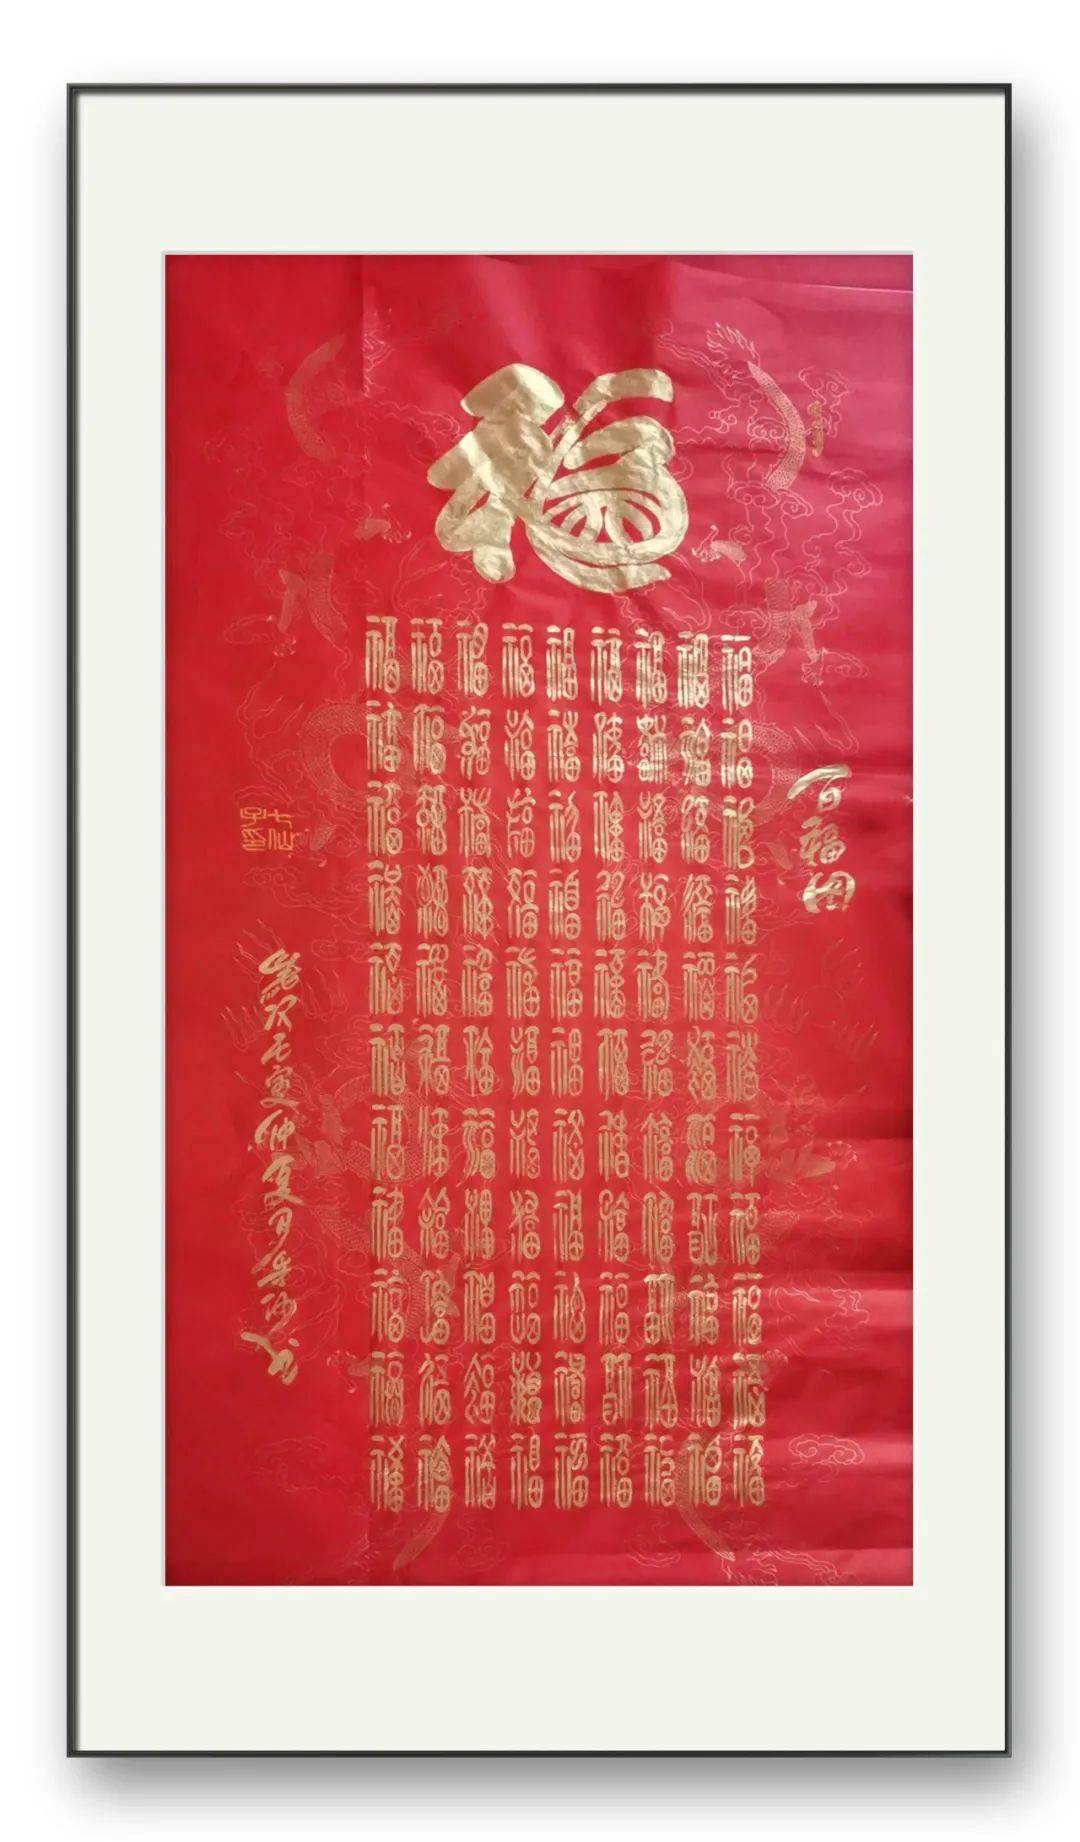 福
百福图
福福福福福福福福福福福
福福福福福福福福福福福
福福福福福福福福福福福
福福福福福福福福福福福
福福福福福福福福福福福
福福福福福福福福福福福
福福福福福福福福福福福
福福福福福福福福福福福
福福福福福福福福福福福
岁次壬寅仲夏月